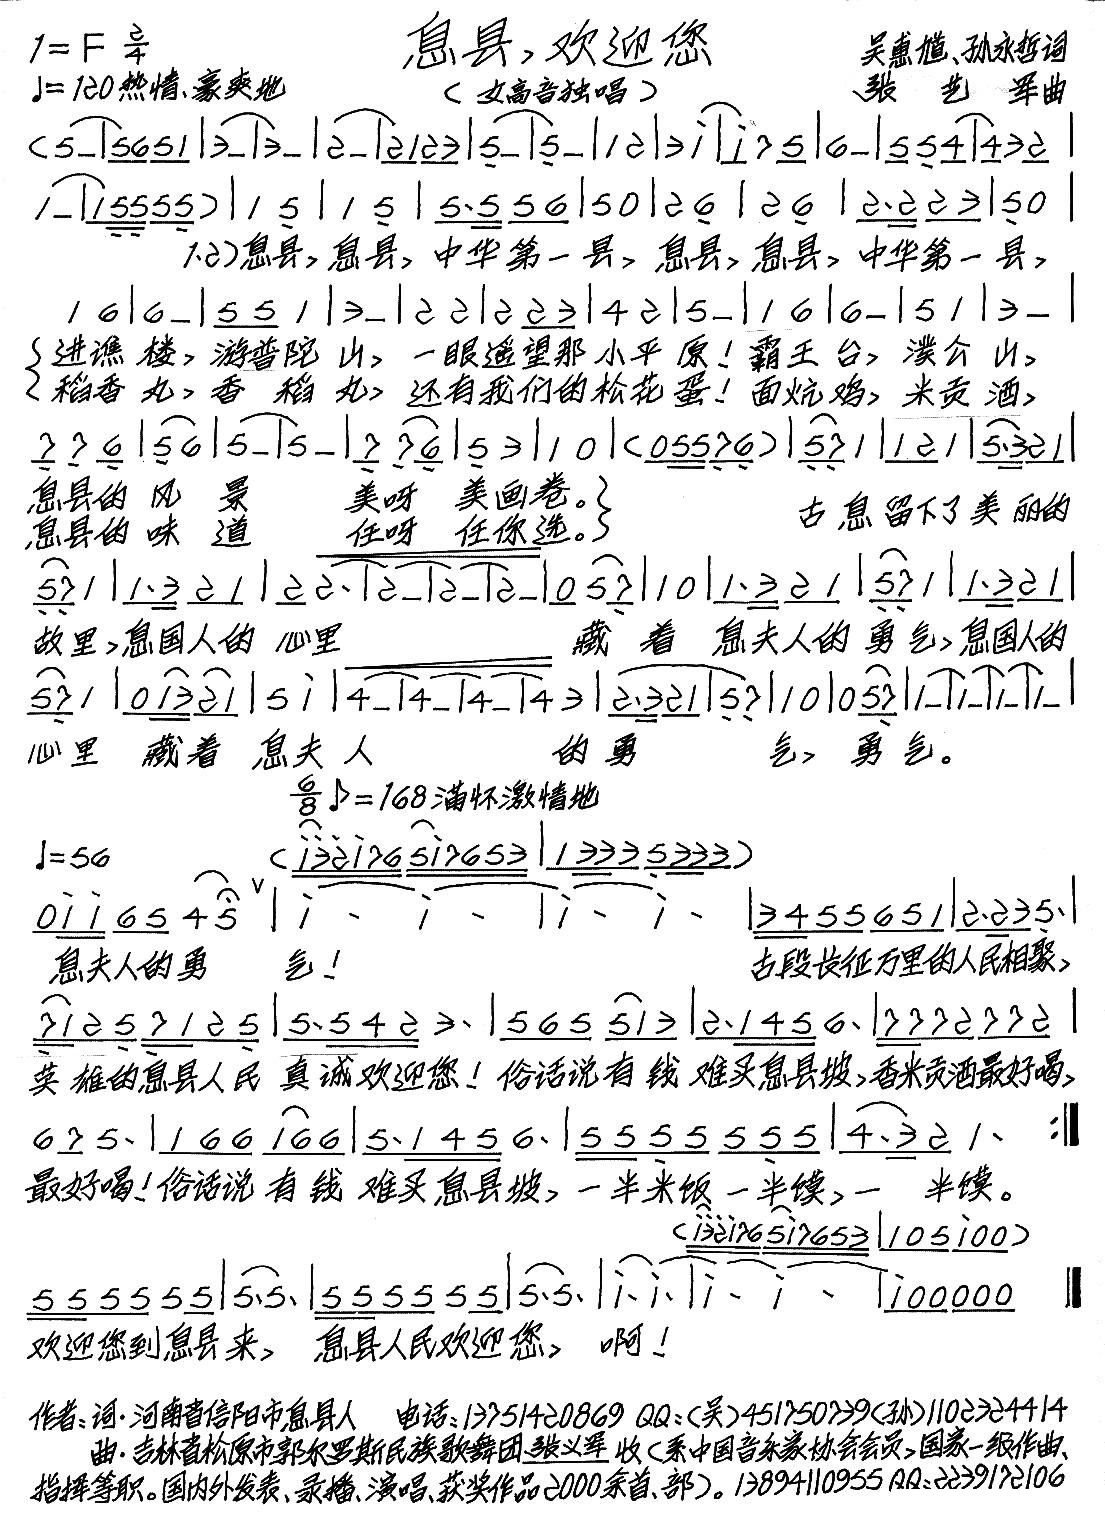 息县,欢迎您
1=F 2/4
吴惠馗、孙永哲词
♩=120 热情、豪爽地
(女高音独唱)
张艺军曲
(5-|5651|3-|3-|2-|2123|5-|5-|12|31|175|6-|554|432|
1-|15555)|15|15|5·556|50|26|26|2·223|50|
1.2)息县,息县,中华第一县,息县,息县,中华第一县,
16|6-|551|3-|22|223|42|5-|16|6-|51|3-|
进谯楼,游普陀山,一眼遥望那小平原!霸王台,濮公山,
稻香丸,香稻丸,还有我们的松花蛋!面炕鸡,米贡酒,
776|56|5-|5-|776|53|10|(05576)|571|121|5·321|
息县的风景 美呀 美画卷。 古息留下了美丽的
息县的味道 任呀 任你选。
571|1·321|22·|2-|2-|2-|057|10|1·321|571|1·321|
故里,息国人的心里 藏着 息夫人的勇气,息国人的
571|01321|5i|4-|4-|4-|43|2·321|57|10|057|1-|1-|1-|1-|
心里 藏着 息夫人 的勇 气,勇气。
6/8 ♪=168 满怀激情地
♩=56 (i32i76 5i7653|1333 5333)
0ii 65 45 ∨|i· i·|i· i·|3455651|2·235·|
息夫人的勇 气! 古段长征万里的人民相聚,
7125 7125|5·5423·|565 513|2·1456·|7772772|
英雄的息县人民 真诚欢迎您!俗话说有钱难买息县坡,香米贡酒最好喝,
675·|166 166|5·1456·|5555555|4·321·:‖
最好喝!俗话说有钱难买息县坡,一半米饭一半馍,一 半馍。
(i32i76 5i7653|105i00)
555555|5·5·|555555|5·5·|i·i·|i· i·|i00000‖
欢迎您到息县来,息县人民欢迎您,啊!
作者:词·河南省信阳市息县人 电话:13751420869 QQ:(吴)451750739(孙)1102324414
曲·吉林省松原市郭尔罗斯民族歌舞团张义军收(系中国音乐家协会会员,国家一级作曲、
指挥等职。国内外发表、录播、演唱、获奖作品2000余首、部)。13894110955 QQ:2239172106